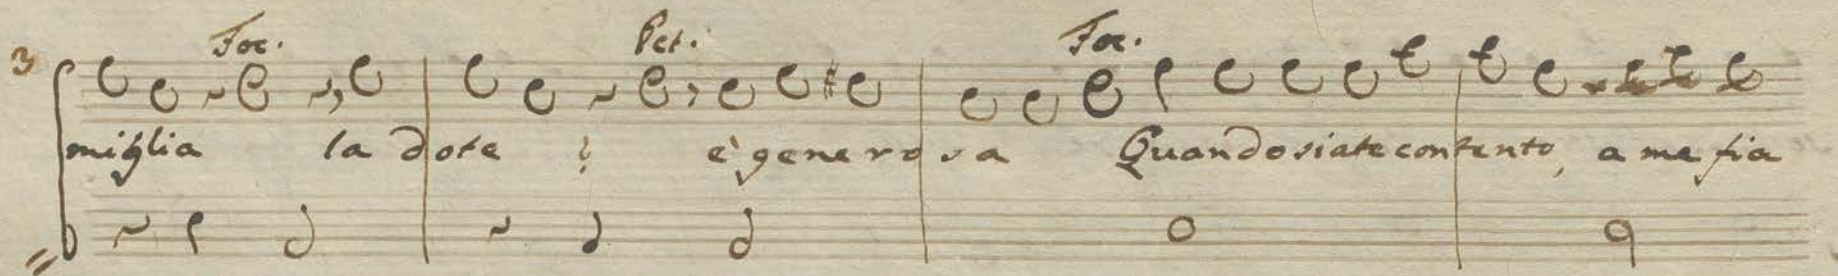 3 Foc. Pet. Foc.
miglia la dote ? è generosa Quando siate contento, a me fia